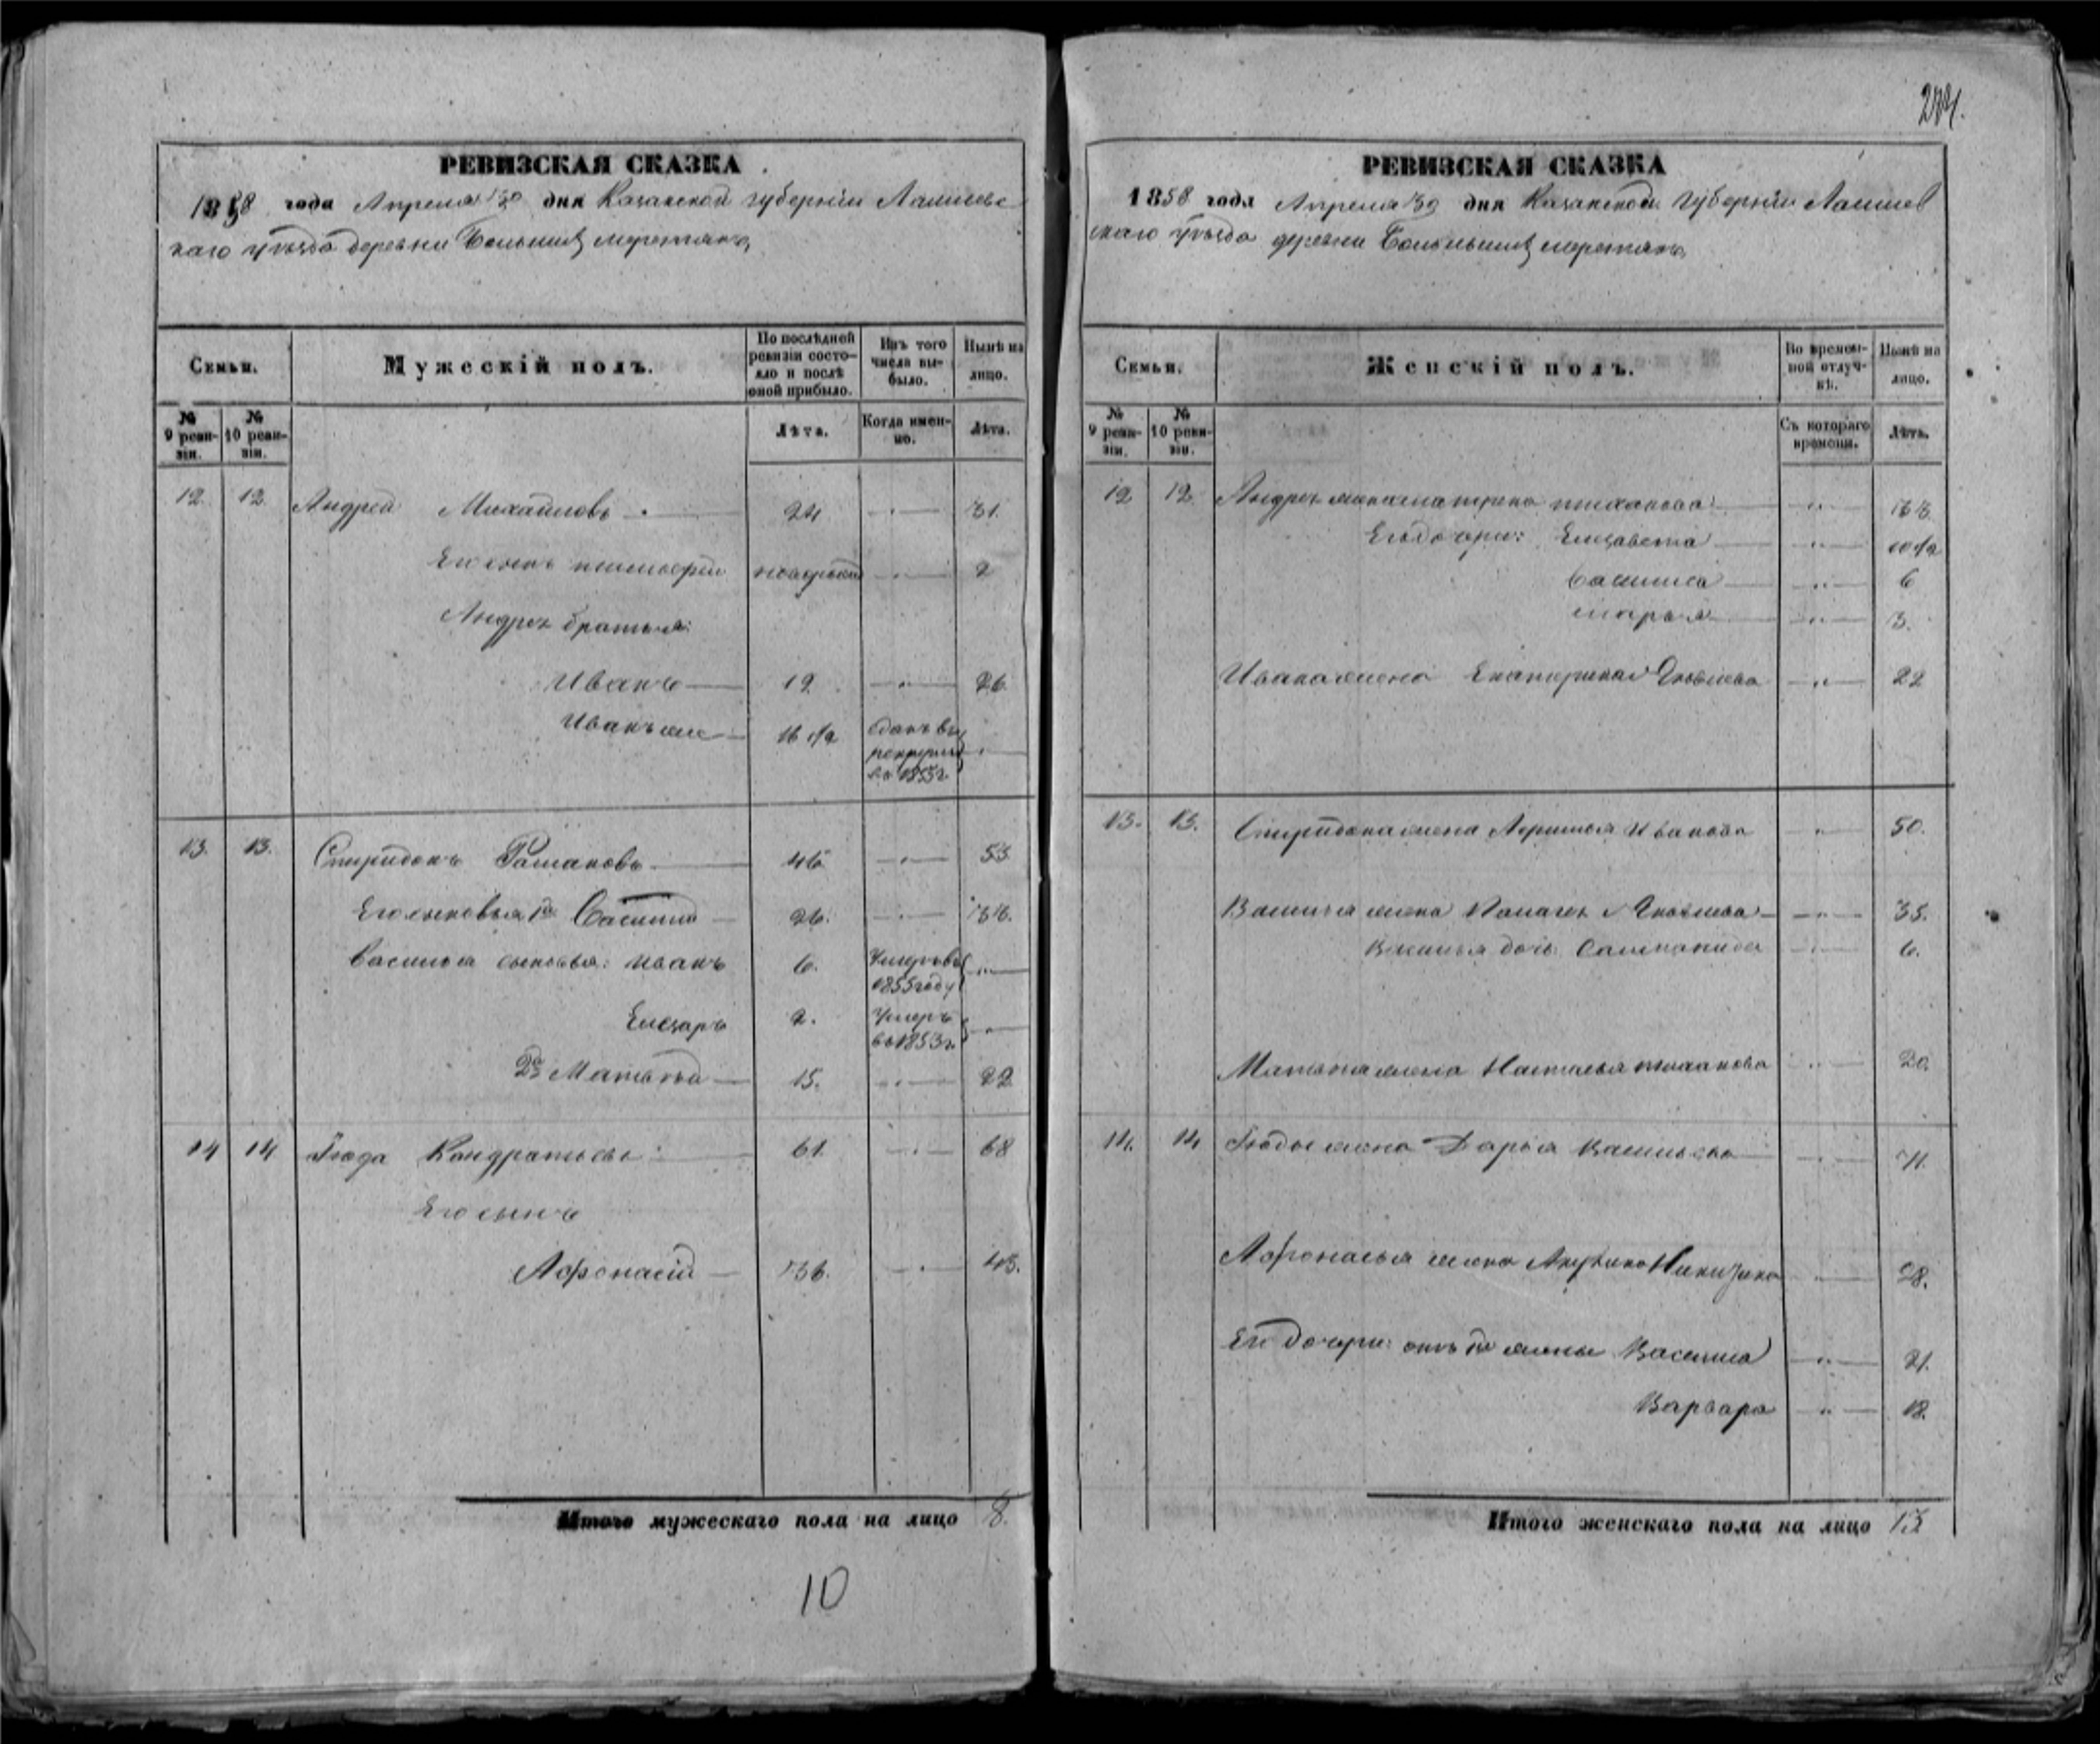 РЕВИЗСКАЯ СКАЗКА
1858 года Апреля 30 дня Казанской губернiи Лаишевс
каго уѣзда деревни Большихъ
Семьи.
Мужескiй полъ.
По послѣдней ревизiи состо-
яло и послѣ
оной прибыло.
Изъ того
числа вы-
было.
Нынѣ на
лицо.
№
9 реви-
зiи.
№
10 реви-
зiи.
Лѣта.
Когда имен-
но.
Лѣта.
12. 12. Андрей Михайловъ 24 " 31.
Его сынъ новорожд " 2
Андрея братья:
Иванъ 19 " 26.
Иванъ же 16 1/2 сданъ въ
рекруты
въ 1853 г. "
13. 13. Спиридонъ Романовъ 46 " 53.
Его сыновья 1й Василiй 26. " 33.
Василья сыновья: Иванъ 6. Умеръ въ
1855 году "
Елизаръ 2. Умеръ
въ 1853 г. "
2й Матвѣй 15. " 22
14 14 Кондратьевъ 61. " 68
Его сынъ
Афонасiй 36. " 43.
Итого мужескаго пола на лицо 8.
10
РЕВИЗСКАЯ СКАЗКА
1858 года Апреля 30 дня Казанской губернiи Лаишев
скаго уѣзда деревни Большихъ
Семьи.
Женскiй полъ.
Во времен-
ной отлуч-
кѣ.
Нынѣ на
лицо.
№
9 реви-
зiи.
№
10 реви-
зiи.
Съ котораго
времени.
Лѣта.
12 12. Андрея жена "  33
Его дочери: Елизавета " 10 1/2
Василиса " 6
Марья " 3.
Ивана жена Екатерина Яковлева " 22
13. 13. Спиридона жена Иванова " 50.
Василья жена Яковлева " 35.
Василья дочь " 6.
Матвѣя жена Наталья " 20.
14. 14 жена Дарья Васильева " 71.
Афонасья жена Акулина " 28.
Его дочери: отъ 1й жены Василиса " 21.
Варвара " 18.
Итого женскаго пола на лицо 13